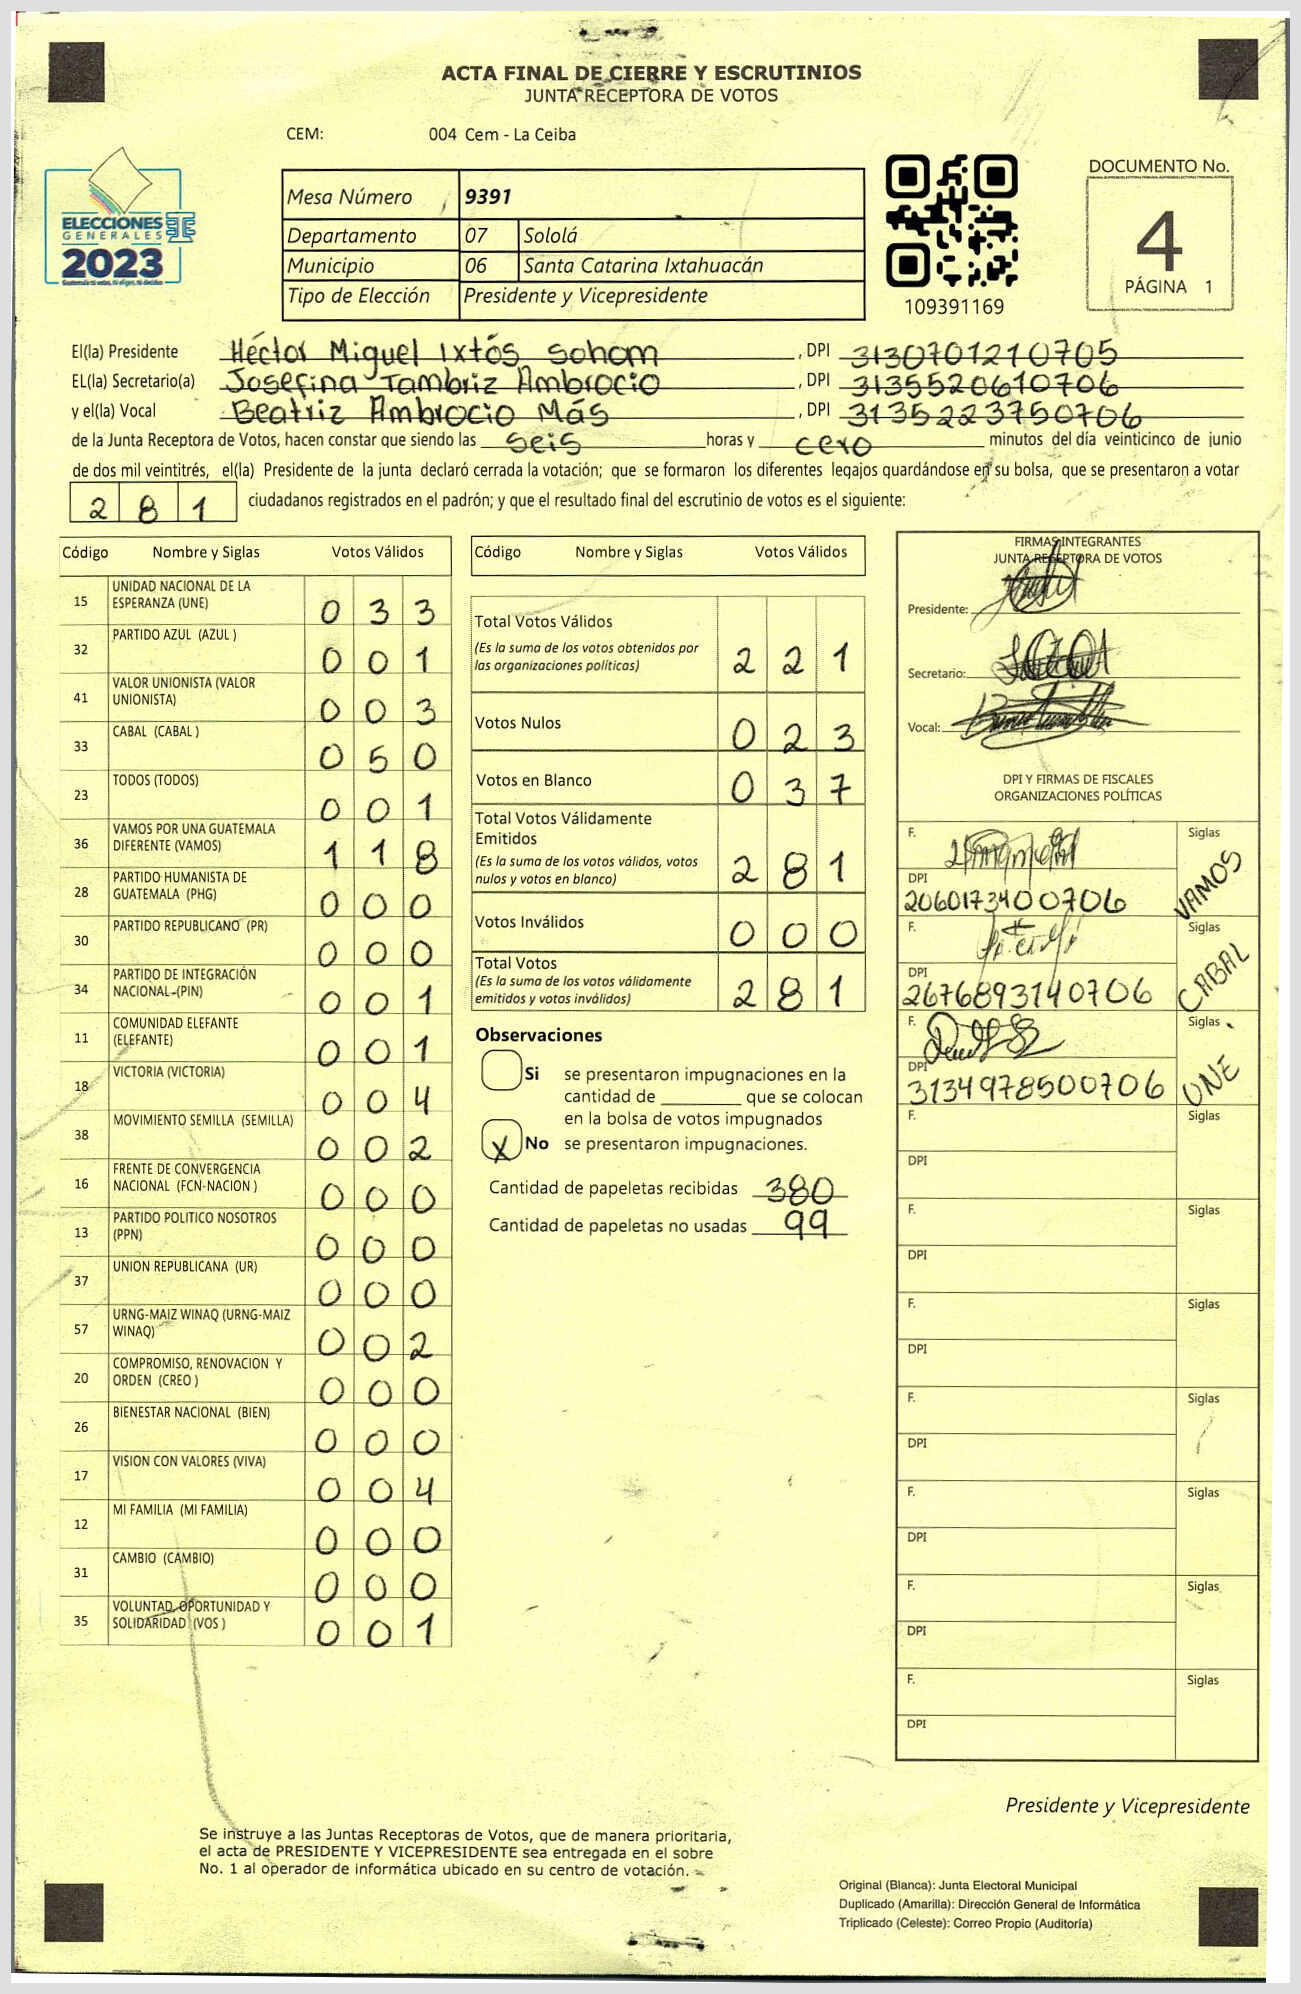 ACTA FINAL DE CIERRE Y ESCRUTINIOS
JUNTA RECEPTORA DE VOTOS
CEM: 004 Cem - La Ceiba
ELECCIONES
GENERALES
2023
Mesa Número 9391
Departamento 07 Sololá
Municipio 06 Santa Catarina Ixtahuacán
Tipo de Elección Presidente y Vicepresidente
109391169
DOCUMENTO No.
4
PÁGINA 1
El(la) Presidente Héctor Miguel Ixtós Sohom, DPI 3130701210705
EL(la) Secretario(a) Josefina Tambriz Ambrocio, DPI 3135520610706
y el(la) Vocal Beatriz Ambrocio Más, DPI 3135223750706
de la Junta Receptora de Votos, hacen constar que siendo las seis horas y cero minutos del día veinticinco de junio
de dos mil veintitrés, el(la) Presidente de la junta declaró cerrada la votación; que se formaron los diferentes legajos quardándose en su bolsa, que se presentaron a votar
281 ciudadanos registrados en el padrón; y que el resultado final del escrutinio de votos es el siguiente:
Código Nombre y Siglas Votos Válidos
15 UNIDAD NACIONAL DE LA ESPERANZA (UNE) 0 3 3
32 PARTIDO AZUL (AZUL ) 0 0 1
41 VALOR UNIONISTA (VALOR UNIONISTA) 0 0 3
33 CABAL (CABAL ) 0 5 0
23 TODOS (TODOS) 0 0 1
36 VAMOS POR UNA GUATEMALA DIFERENTE (VAMOS) 1 1 8
28 PARTIDO HUMANISTA DE GUATEMALA (PHG) 0 0 0
30 PARTIDO REPUBLICANO (PR) 0 0 0
34 PARTIDO DE INTEGRACIÓN NACIONAL (PIN) 0 0 1
11 COMUNIDAD ELEFANTE (ELEFANTE) 0 0 1
18 VICTORIA (VICTORIA) 0 0 4
38 MOVIMIENTO SEMILLA (SEMILLA) 0 0 2
16 FRENTE DE CONVERGENCIA NACIONAL (FCN-NACION ) 0 0 0
13 PARTIDO POLITICO NOSOTROS (PPN) 0 0 0
37 UNION REPUBLICANA (UR) 0 0 0
57 URNG-MAIZ WINAQ (URNG-MAIZ WINAQ) 0 0 2
20 COMPROMISO, RENOVACION Y ORDEN (CREO ) 0 0 0
26 BIENESTAR NACIONAL (BIEN) 0 0 0
17 VISION CON VALORES (VIVA) 0 0 4
12 MI FAMILIA (MI FAMILIA) 0 0 0
31 CAMBIO (CAMBIO) 0 0 0
35 VOLUNTAD, OPORTUNIDAD Y SOLIDARIDAD (VOS ) 0 0 1
Código Nombre y Siglas Votos Válidos
Total Votos Válidos 2 2 1
(Es la suma de los votos obtenidos por
las organizaciones políticas)
Votos Nulos 0 2 3
Votos en Blanco 0 3 7
Total Votos Válidamente
Emitidos 2 8 1
(Es la suma de los votos válidos, votos
nulos y votos en blanco)
Votos Inválidos 0 0 0
Total Votos 2 8 1
(Es la suma de los votos válidamente
emitidos y votos inválidos)
Observaciones
Si se presentaron impugnaciones en la
cantidad de ________ que se colocan
en la bolsa de votos impugnados
X No se presentaron impugnaciones.
Cantidad de papeletas recibidas 380
Cantidad de papeletas no usadas 99
FIRMAS INTEGRANTES
JUNTA RECEPTORA DE VOTOS
Presidente:
Secretario:
Vocal:
DPI Y FIRMAS DE FISCALES
ORGANIZACIONES POLÍTICAS
F. Siglas VAMOS
DPI 2060173400706
F. Siglas CABAL
DPI 2676893140706
F. Siglas UNE
DPI 3134978500706
F. Siglas
DPI
F. Siglas
DPI
F. Siglas
DPI
F. Siglas
DPI
F. Siglas
DPI
F. Siglas
DPI
F. Siglas
DPI
Presidente y Vicepresidente
Se instruye a las Juntas Receptoras de Votos, que de manera prioritaria,
el acta de PRESIDENTE Y VICEPRESIDENTE sea entregada en el sobre
No. 1 al operador de informática ubicado en su centro de votación.
Original (Blanca): Junta Electoral Municipal
Duplicado (Amarilla): Dirección General de Informática
Triplicado (Celeste): Correo Propio (Auditoría)